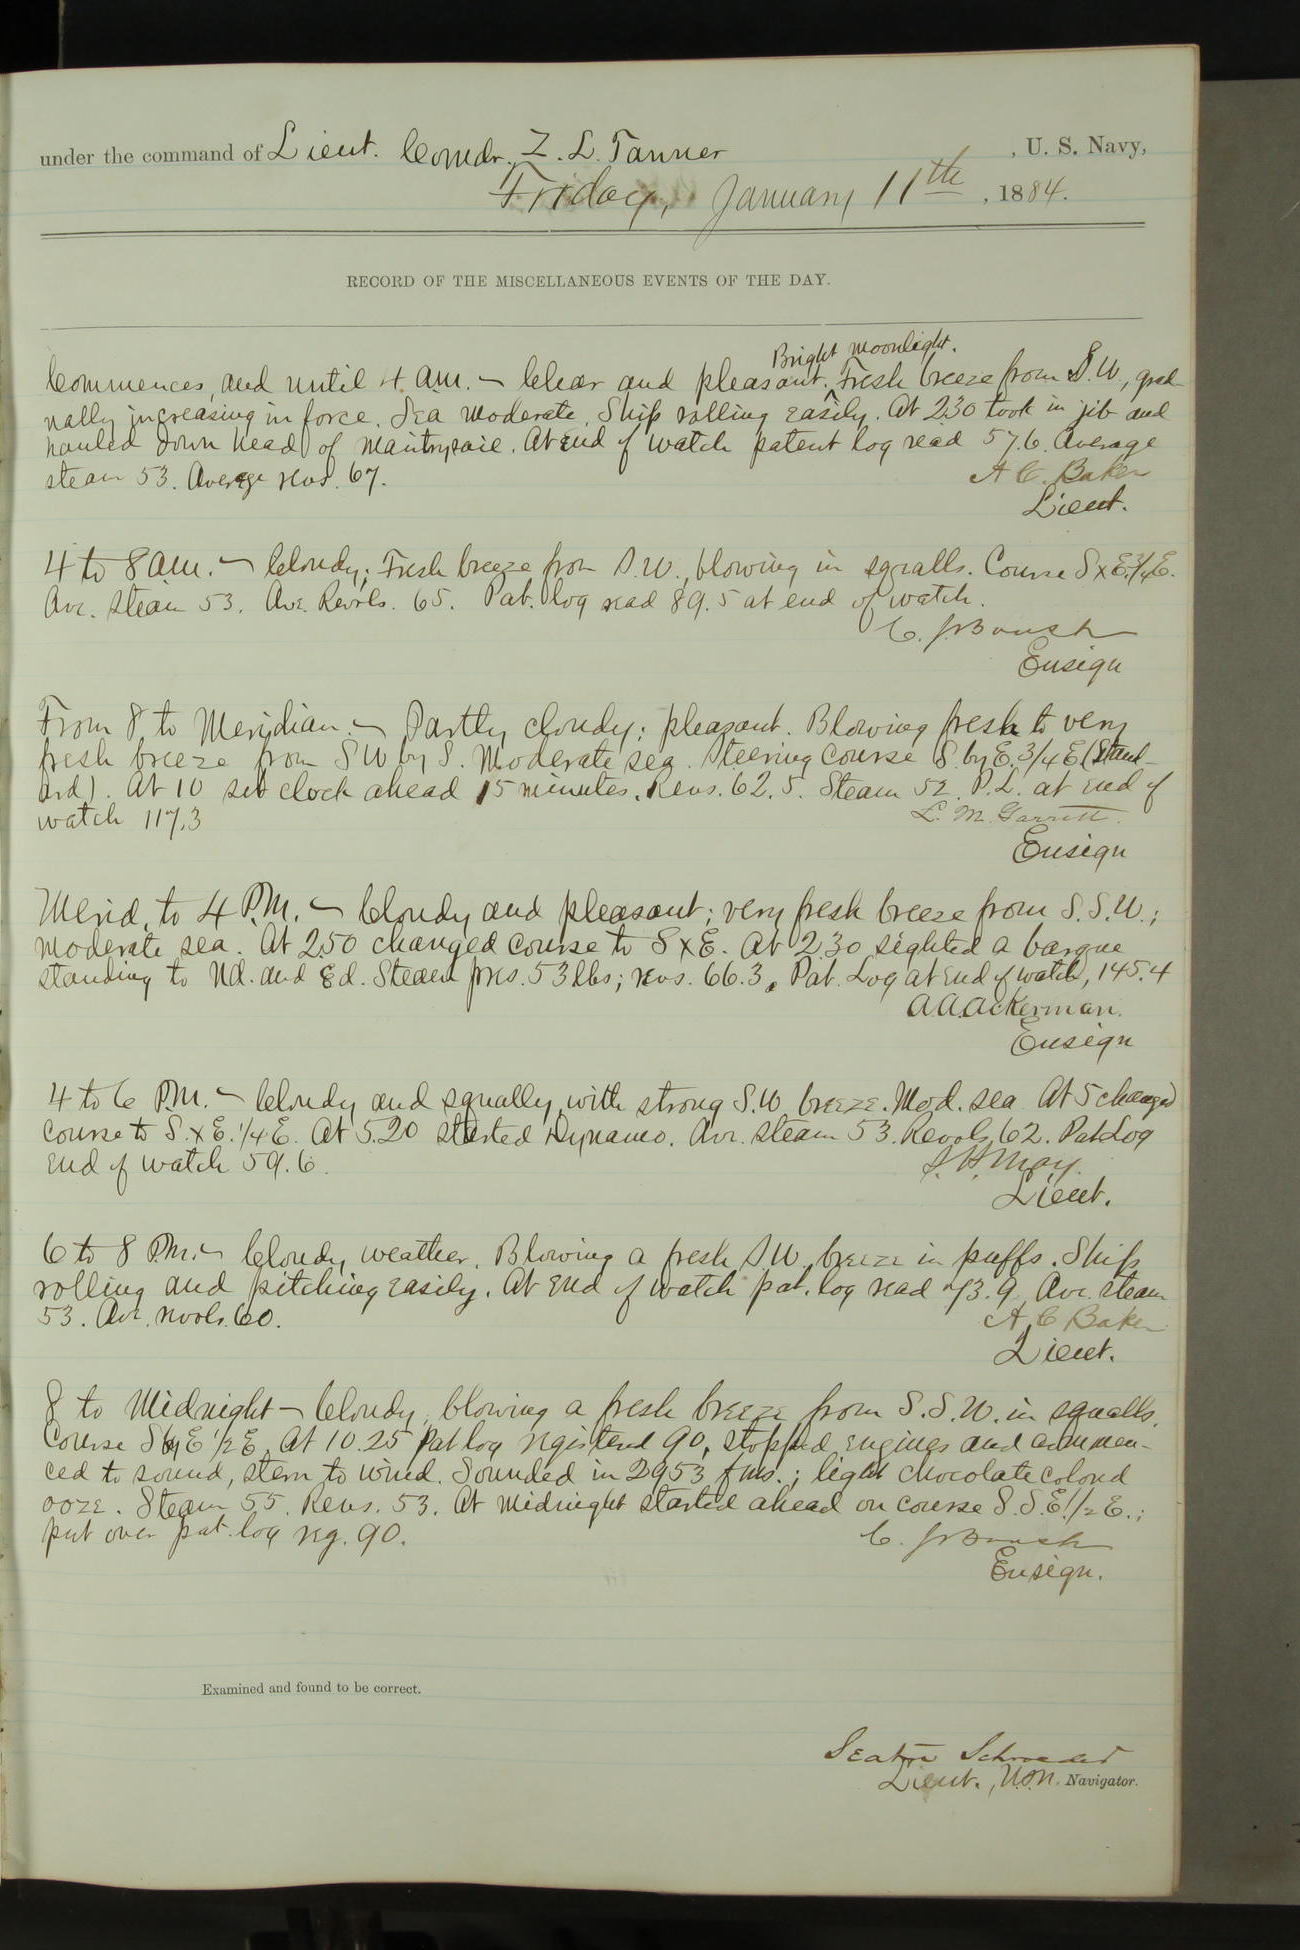 under the command of Lieut. Comdr. Z. L. Tanner , U. S. Navy,
Friday, January 11th , 1884.
RECORD OF THE MISCELLANEOUS EVENTS OF THE DAY.
Bright moonlight.
Commences, and until 4 A.M. – Clear and pleasant. Fresh breeze from S.W., grad-
ually increasing in force. Sea moderate. Ship rolling easily. At 2.30 took in jib and
hauled down head of maintrysail. At end of watch patent log read 57.6. Average
steam 53. Average revs. 67. A C. Baker
Lieut.
4 to 8 A.M. – Cloudy; Fresh breeze from S.W., blowing in squalls. Course SxE.3/4E.
Ave. steam 53. Ave. Revols. 65. Pat. log read 89.5 at end of watch.
C. J. Boush
Ensign
From 8 to Meridian – Partly cloudy; pleasant. Blowing fresh to very
fresh breeze from SW by S. Moderate sea. Steering course S. by E. 3/4 E (Stand-
ard). At 10 set clock ahead 15 minutes. Revs. 62.5. Steam 52. P.L. at end of
watch 117.3 L. M. Garrett.
Ensign
Merid. to 4 P.M. – Cloudy and pleasant; very fresh breeze from S.S.W.;
moderate sea. At 2.50 changed course to SxE. At 2.30 sighted a barque
standing to Nd. and Ed. Steam pres. 53 lbs; revs. 66.3. Pat. Log at end of watch, 145.4
A.A. Ackerman.
Ensign
4 to 6 P.M. – Cloudy and squally with strong S.W. breeze. Mod. sea. At 5 changed
course to S.xE.1/4E. At 5.20 started Dynamo. Ave. steam 53. Revols. 62. Pat Log
end of watch 59.6. S. H. May.
Lieut.
6 to 8 P.M. – Cloudy weather. Blowing a fresh S.W. breeze in puffs. Ship
rolling and pitching easily. At end of watch pat. log read 73.9. Ave. steam
53. Ave. revols. 60. A C Baker
Lieut.
8 to Midnight – Cloudy, blowing a fresh breeze from S.S.W. in squalls.
Course S by E 1/2 E. At 10.25 Pat log registered 90, stopped engines and commen-
ced to sound, stern to wind. Sounded in 2953 fms.; light chocolate colored
ooze. Steam 55. Revs. 53. At midnight started ahead on course S.S.E.1/2E.;
put over pat. log reg. 90. C. J. Boush
Ensign.
Examined and found to be correct.
Seaton Schroeder
Lieut., U.S.N. Navigator.